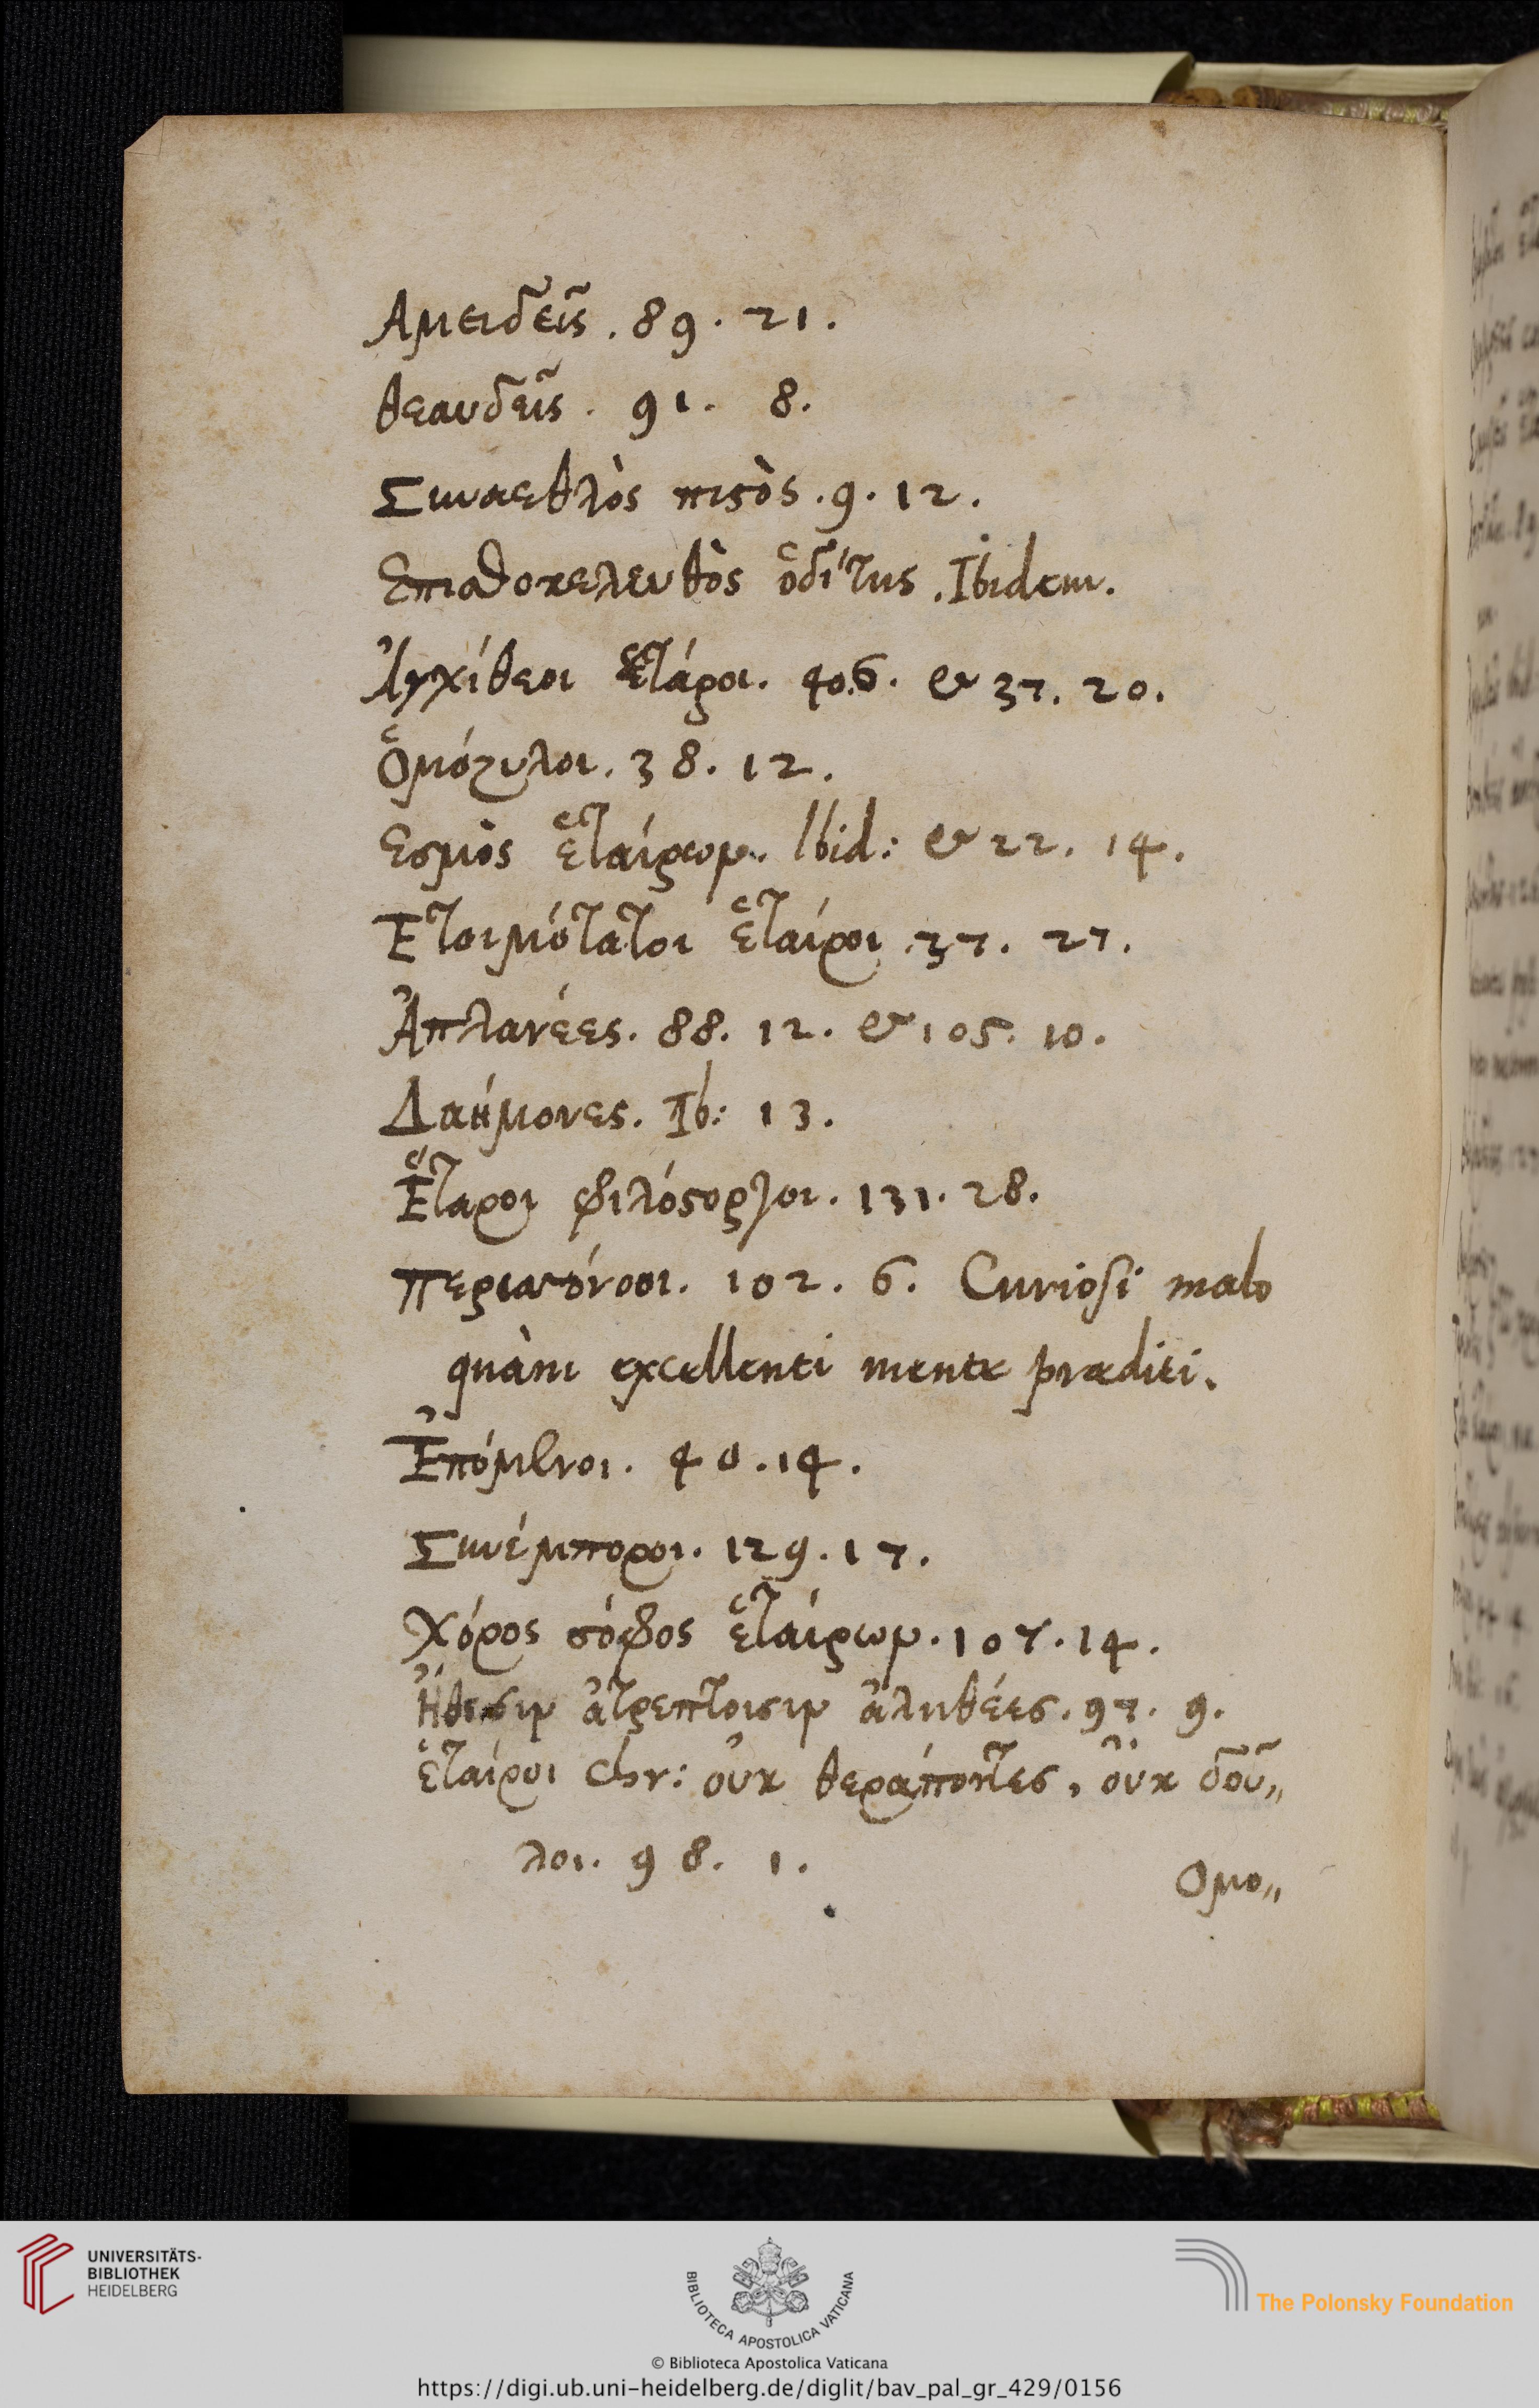 Αμειδεῖς . 89 . 21 .
θεαυδεῖς . 91 . 8 .
Συναεθλὸς πιςὸς . 9 . 12 .
ὁδίτης . Ibidem .
Ἀγχίθεοι ἑτάροι . 40.6 . & 37 . 20 .
Ὁμόζυλοι . 38 . 12 .
Εσμὸς ἑταίρων . Ibid : & 22 . 14 .
Ετοιμότατοι ἑταίροι . 37 . 27 .
Ἀπλανέες . 88 . 12 . & 105 . 10 .
Δαήμονες . Ib : 13 .
Ἕταροι φιλόςοργοι . 131 . 28 .
102 . 6 . Curiosi malo
quàm excellenti mente præditi .
Ἐπόμενοι . 40 . 14 .
Συνέμποροι . 129 . 17 .
Χόρος σόφος ἑταίρων . 107 . 14 .
Ἤθεσιν ἀτρεπτοισιν ἀληθέες . 97 . 9 .
ἑταίροι chr : οὐκ θεράποντες , οὐκ δοῦ„
λοι . 98 . 1 .
Ομο„
UNIVERSITÄTS-
BIBLIOTHEK
HEIDELBERG
BIBLIOTECA APOSTOLICA VATICANA
The Polonsky Foundation
© Biblioteca Apostolica Vaticana
https://digi.ub.uni-heidelberg.de/diglit/bav_pal_gr_429/0156